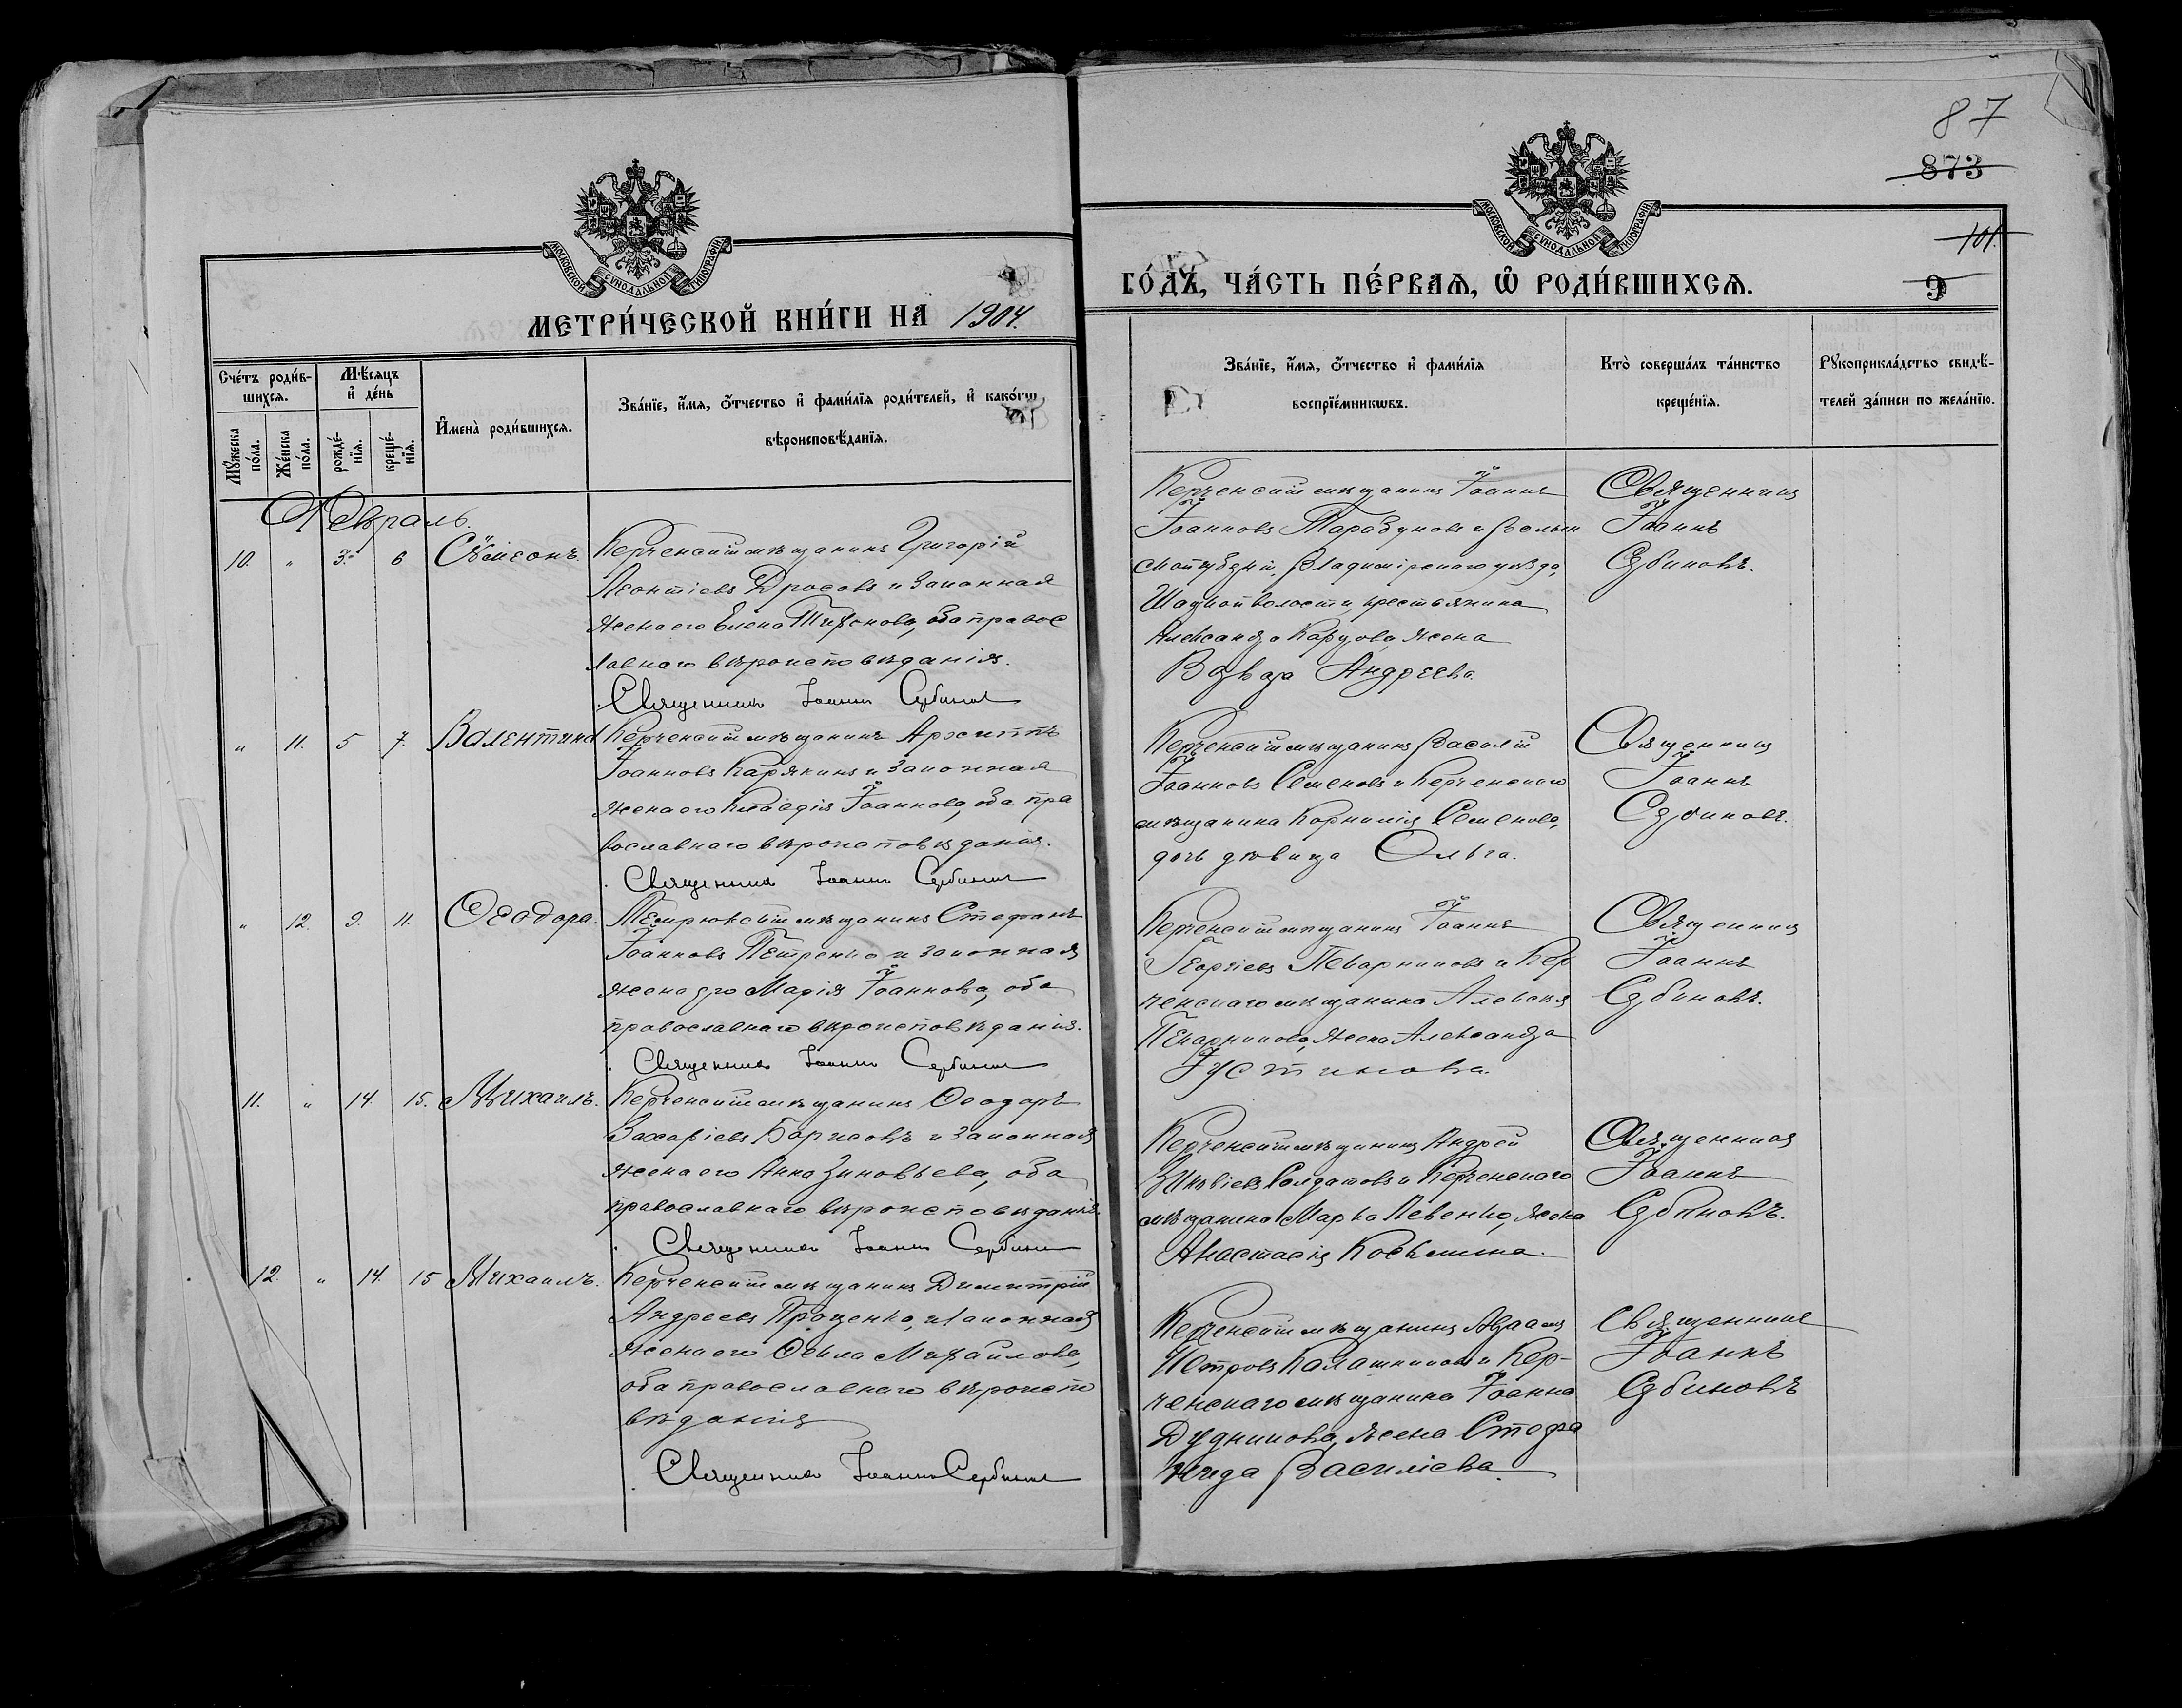 87
873
101.
9
МОСКОВСКОЙ СѴНОДАЛЬНОЙ ТИПОГРАФІИ
МОСКОВСКОЙ СѴНОДАЛЬНОЙ ТИПОГРАФІИ
МЕТРИ́ЧЕСКОЙ КНИ́ГИ НА 1904.
ГО́ДЪ, ЧА́СТЬ ПЕ́РВАѦ, Ѽ РОДИ́ВШИХСѦ.
Сче́тъ роди́в-
шихсѧ.
Мѣ́сѧцъ
и҆ де́нь
Мꙋ́жеска
по́ла.
Же́нска
по́ла.
рожде́-
нїѧ.
креще́-
нїѧ.
И҆мена̀ роди́вшихсѧ.
Зва́нїе, и҆́мѧ, ѻ҆́тчество и҆ фами́лїѧ роди́телей, и҆ како́гѡ
вѣроисповѣ́данїѧ.
Зва́нїе, и҆́мѧ, ѻ҆́тчество и҆ фами́лїѧ
воспрїе́мникѡвъ.
Кто̀ соверша́лъ та́инство
креще́нїѧ.
Рꙋкоприкла́дство свидѣ́-
телей за́писи по жела́нїю.
Февраль.
10. " 3. 6 Сѵмеонъ.
Керченскій мѣщанинъ Григорій
Леонтіевъ Дросовъ и законная
жена его Елена Тихонова, оба правос
лавнаго вѣроисповѣданія.
Священникъ Іоаннъ Сербиновъ
Керченскій мѣщанинъ Іоаннъ
Іоанновъ Тарабуновъ и Волын
ской губерніи, Владимірскаго уѣзда,
волости, крестьянина
Александра Карпова, жена
Варвара Андреева.
Священникъ
Іоаннъ
Сербиновъ.
" 11. 5 7. Валентина
Керченскій мѣщанинъ Архиппъ
Іоанновъ Карякинъ и законная
жена его Клавдія Іоаннова, оба пра
вославнаго вѣроисповѣданія.
Священникъ Іоаннъ Сербиновъ
Керченскій мѣщанинъ Василій
Іоанновъ Семеновъ и Керченскаго
мѣщанина Корнилія Семенова,
дочь дѣвица Ольга.
Священникъ
Іоаннъ
Сербиновъ.
" 12. 9. 11. Ѳеодора.
Темрюкскій мѣщанинъ Стефанъ
Іоанновъ Петренко и законная
жена его Марія Іоаннова, оба
православнаго вѣроисповѣданія.
Священникъ Іоаннъ Сербиновъ
Керченскій мѣщанинъ Іоаннъ
Георгіевъ и Кер
ченскаго мѣщанина Алексія
жена Александра
Іустинова.
Священникъ
Іоаннъ
Сербиновъ.
11. " 14. 15. Михаилъ.
Керченскій мѣщанинъ Ѳеодоръ
Захаріевъ Борисовъ и законная
жена его Анна Зиновьева, оба
православнаго вѣроисповѣданія.
Священникъ Іоаннъ Сербиновъ
Керченскій мѣщанинъ Андрей
Солдатовъ и Керченскаго
мѣщанина Марка Левенко, жена
Анастасія Косьмина.
Священникъ
Іоаннъ
Сербиновъ.
12. " 14. 15 Михаилъ.
Керченскій мѣщанинъ Димитрій
Андреевъ Проценко, и законная
жена его Ѳекла Михайлова,
оба православнаго вѣроиспо
вѣданія
Священникъ Іоаннъ Сербиновъ
Керченскій мѣщанинъ
Петровъ Калашниковъ и Кер-
ченскаго мѣщанина Іоанна
Дудникова, жена Стефа
нида Василіева.
Священникъ
Іоаннъ
Сербиновъ